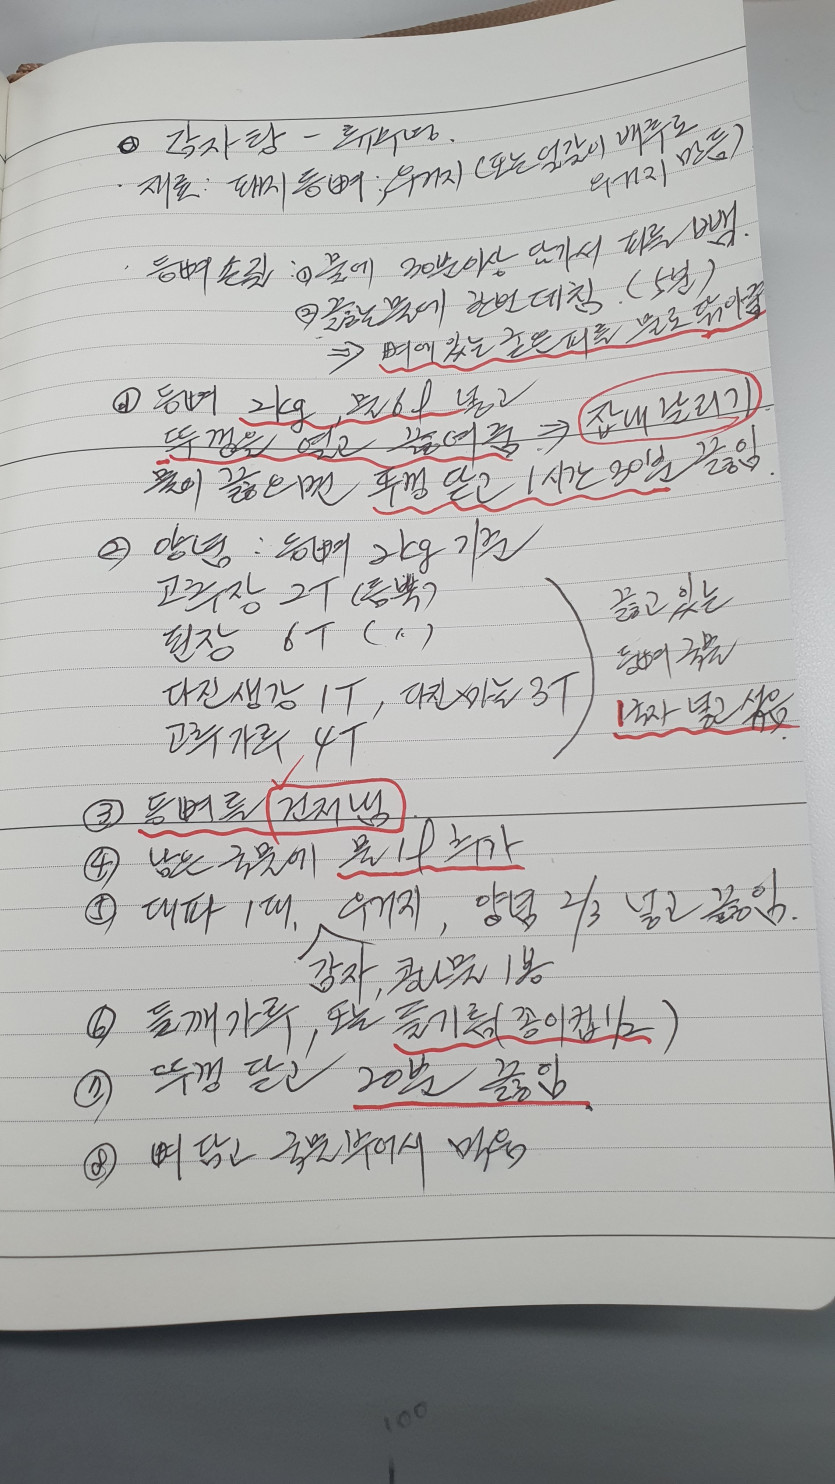 감자탕 - 류수영.
· 재료: 돼지등뼈, 우거지 (또는 얼갈이 배추로
우거지 만듦)
· 등뼈손질 : ① 물에 30분이상 담가서 피를 뺌.
② 끓는물에 한번 데침. (5분)
⇒ 뼈에 있는 굳은피를 물로 닦아줌
① 등뼈 2kg, 물 6ℓ 넣고
뚜껑을 열고 끓여줌 ⇒ 잡내 날리기
물이 끓으면 뚜껑 닫고 1시간 30분 끓임.
② 양념 : 등뼈 2kg 기준
고추장 2T (듬뿍)
된장 6T (〃)
다진생강 1T, 다진마늘 3T
고추가루 4T
끓고 있는
등뼈 국물
1국자 넣고 섞음.
③ 등뼈를 건져냄
④ 남은 국물에 물 1ℓ 추가
⑤ 대파 1대, 우거지, 양념 2/3 넣고 끓임.
감자, 콩나물 1봉
⑥ 들깨가루, 또는 들기름(종이컵 1/2)
⑦ 뚜껑 닫고 20분 끓임
⑧ 뼈 담고 국물부어서 먹음
100